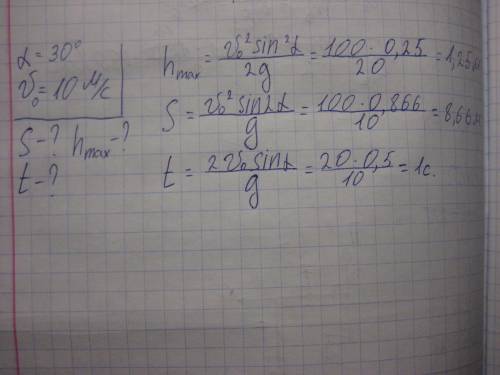 α = 30°
v₀ = 10 м/с
S - ? h max - ?
t - ?
h max = v₀² sin² α / 2g = 100 · 0,25 / 20 = 1,25 м
S = v₀² sin 2α / g = 100 · 0,866 / 10 = 8,66 м
t = 2 v₀ sin α / g = 20 · 0,5 / 10 = 1 с.